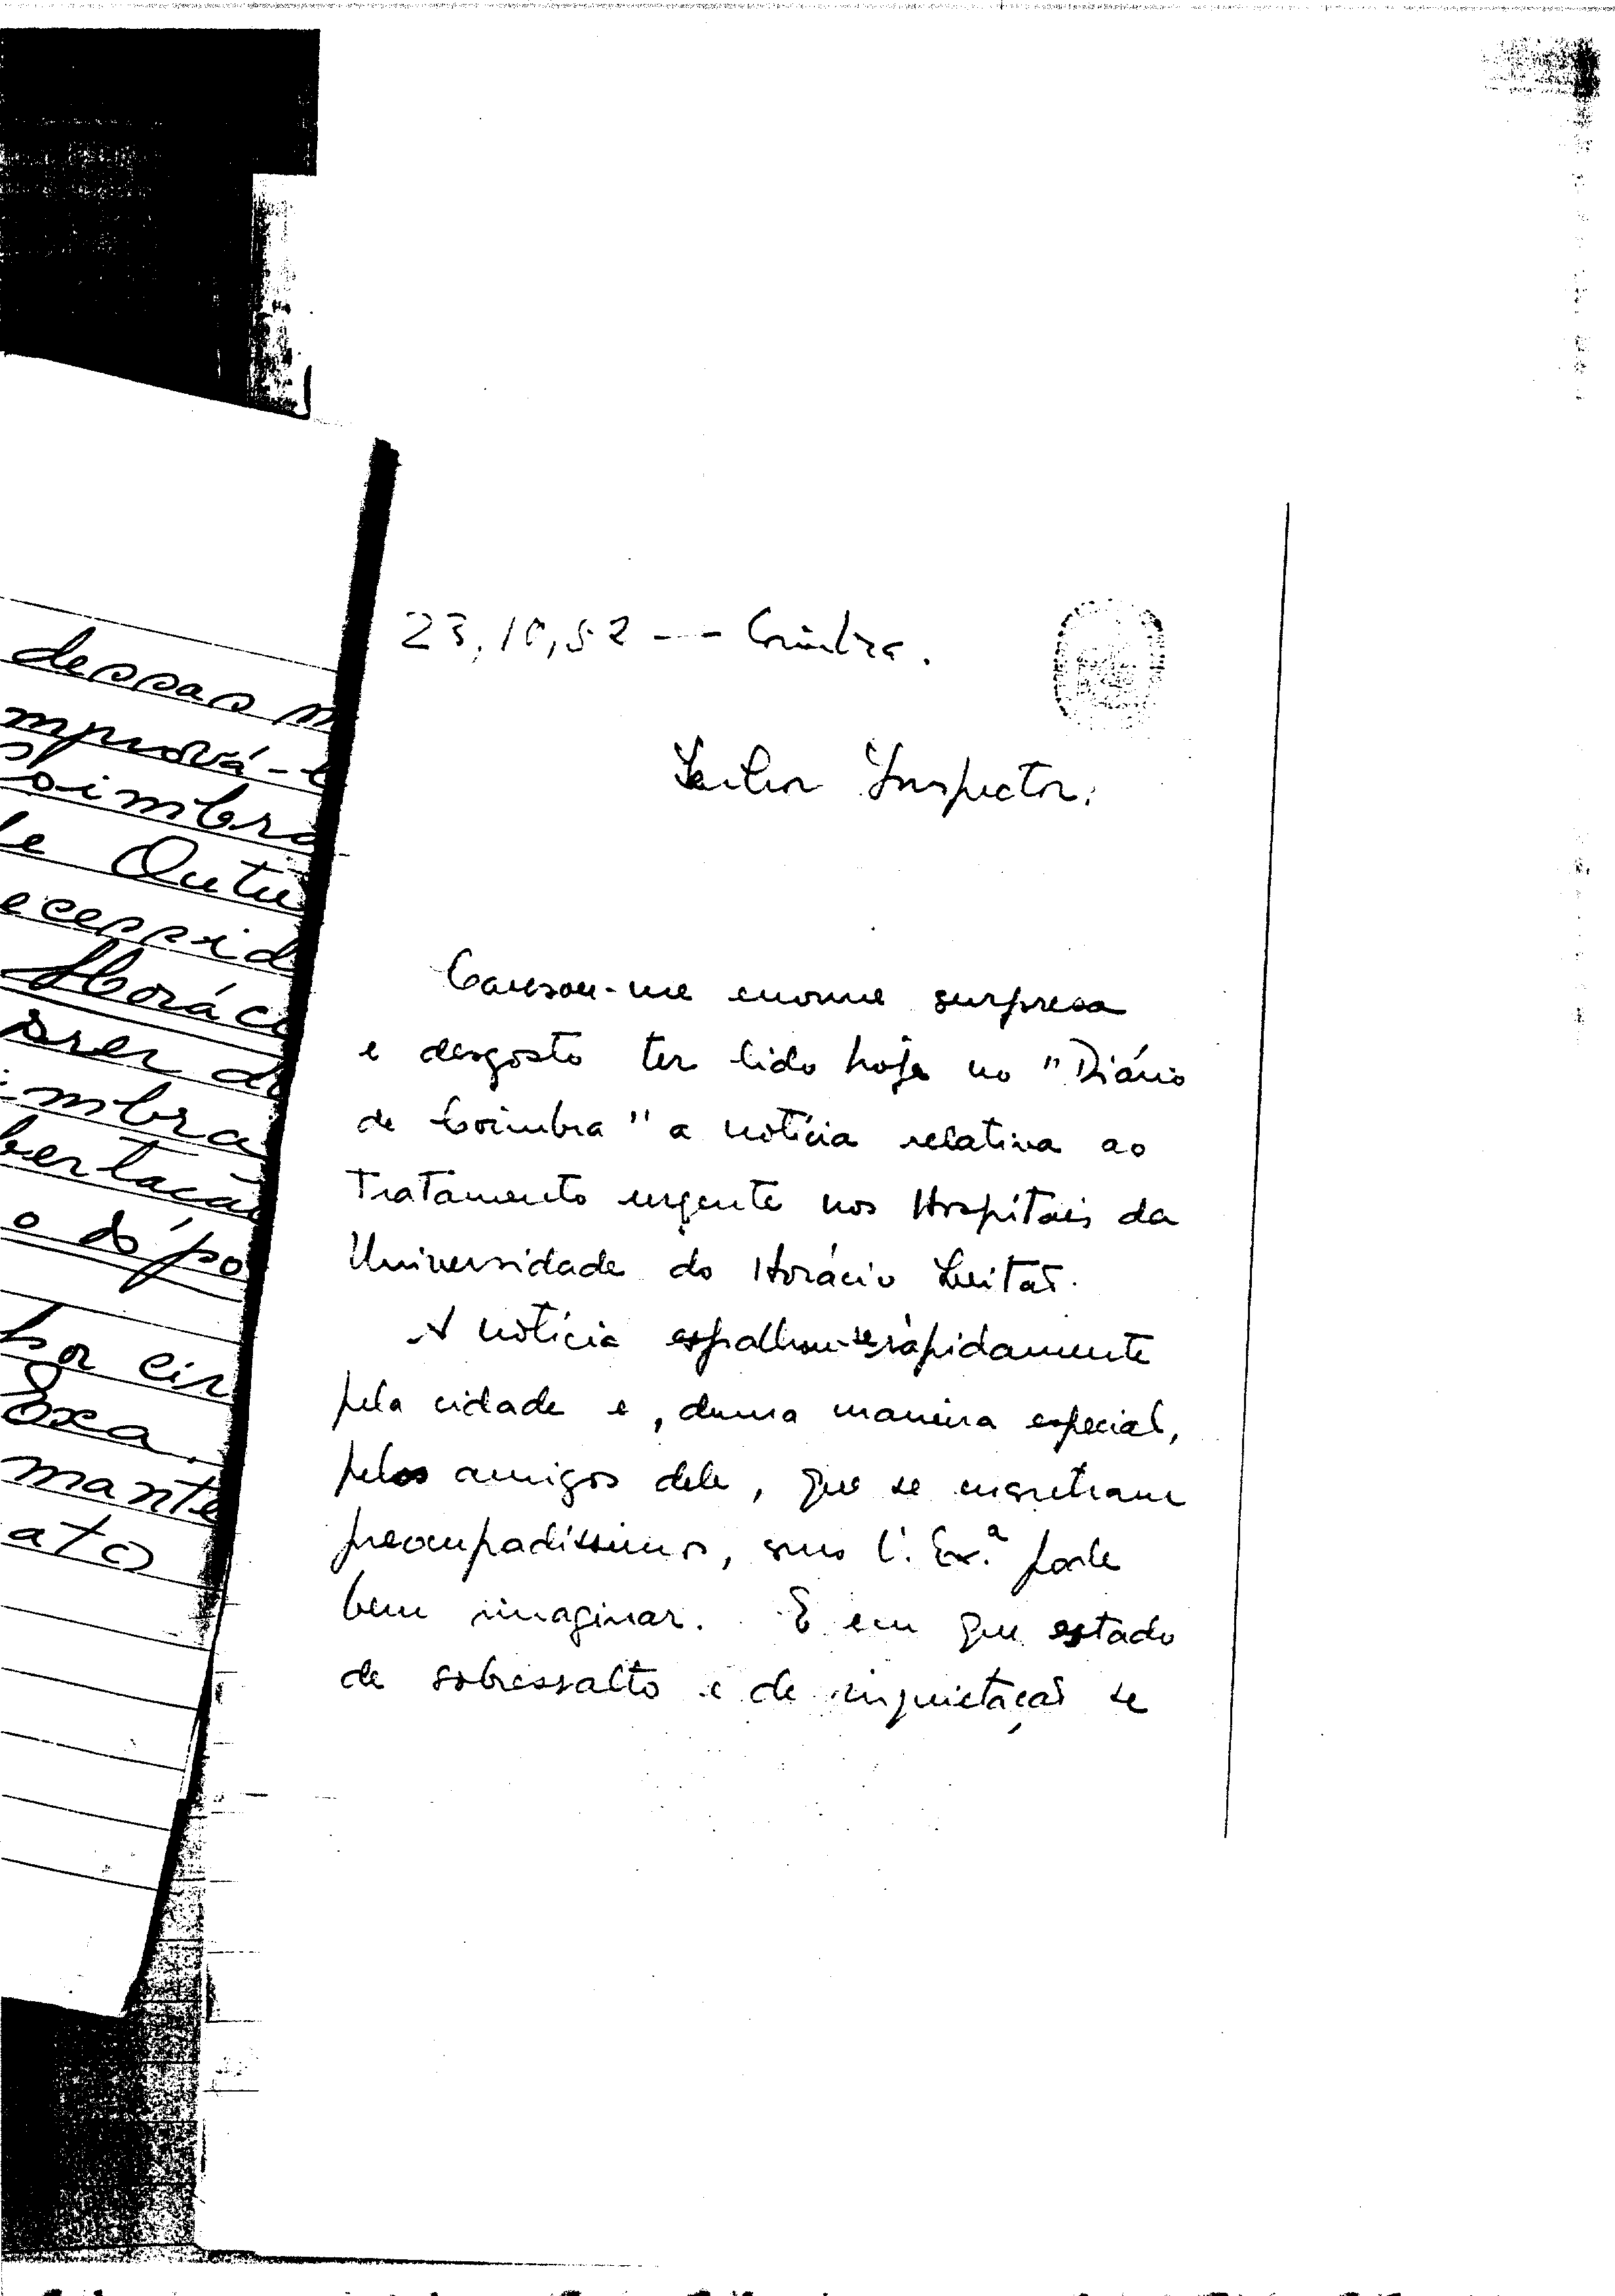 dessas
mprová-
oimbra
e Outu
ecessid
Horáci
mbra
bertação
Exa.
mante
ato
23,10,52 --- Coimbra.
Senhor Inspector:
Causou-me enorme surpresa
e desgosto ter lido hoje no "Diário
de Coimbra" a notícia relativa ao
Tratamento urgente nos Hospitais da
Universidade do Horácio Leitão.
A notícia espalhou-se ràpidamente
pela cidade e, duma maneira especial,
pelos amigos dele, que se encontram
preocupadíssimos, como V. Ex.ª pode
bem imaginar. E em que estado
de sobressalto e de inquietação se